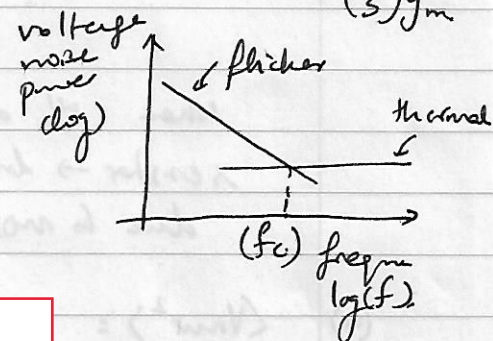 (3) gm
voltage
noise
power
(log)
flicker
thermal
(fc)
freqn
log(f).